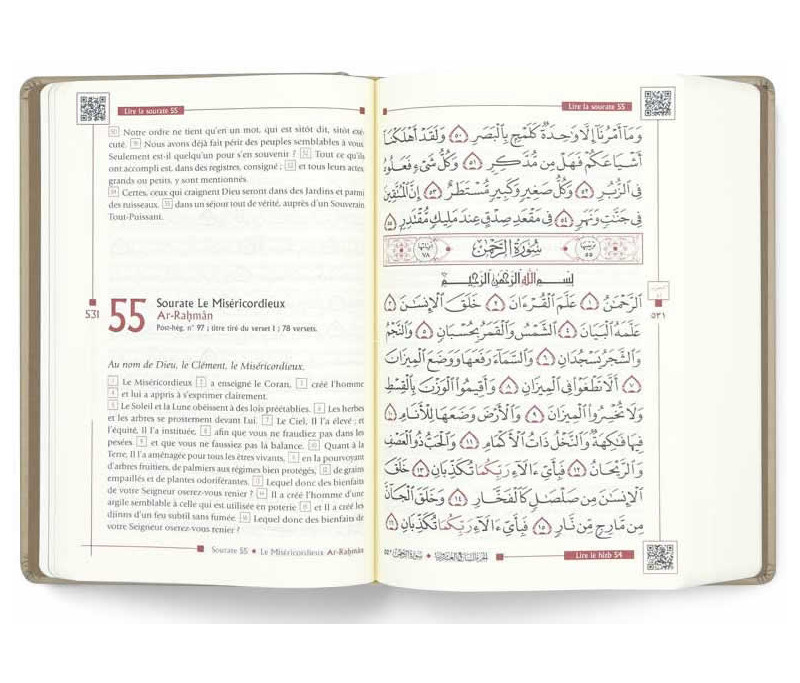 Lire la sourate 55
50 Notre ordre ne tient qu'en un mot, qui est sitôt dit, sitôt exé-
cuté. 51 Nous avons déjà fait périr des peuples semblables à vous.
Seulement est-il quelqu'un pour s'en souvenir ? 52 Tout ce qu'ils
ont accompli est, dans des registres, consigné ; 53 et tous leurs actes,
grands ou petits, y sont mentionnés.
54 Certes, ceux qui craignent Dieu seront dans des Jardins et parmi
des ruisseaux, 55 dans un séjour tout de vérité, auprès d'un Souverain
Tout-Puissant.
531
55
Sourate Le Miséricordieux
Ar-Raḥmân
Post-hég. n° 97 ; titre tiré du verset 1 ; 78 versets.
Au nom de Dieu, le Clément, le Miséricordieux.
1 Le Miséricordieux 2 a enseigné le Coran, 3 créé l'homme
4 et lui a appris à s'exprimer clairement.
5 Le Soleil et la Lune obéissent à des lois préétablies. 6 Les herbes
et les arbres se prosternent devant Lui. 7 Le Ciel, Il l'a élevé ; et
l'équité, Il l'a instituée, 8 afin que vous ne fraudiez pas dans les
pesées, 9 et que vous ne faussiez pas la balance. 10 Quant à la
Terre, Il l'a aménagée pour tous les êtres vivants, 11 en la pourvoyant
d'arbres fruitiers, de palmiers aux régimes bien protégés, 12 de grains
empaillés et de plantes odoriférantes. 13 Lequel donc des bienfaits
de votre Seigneur oserez-vous renier ? 14 Il a créé l'homme d'une
argile semblable à celle qui est utilisée en poterie 15 et Il a créé les
djinns d'un feu subtil sans fumée. 16 Lequel donc des bienfaits de
votre Seigneur oserez-vous renier ?
Sourate 55 • Le Miséricordieux Ar-Raḥmân
Lire la sourate 55
وَمَآ أَمْرُنَآ إِلَّا وَٰحِدَةٌ كَلَمْحٍۭ بِٱلْبَصَرِ ٥٠ وَلَقَدْ أَهْلَكْنَآ
أَشْيَاعَكُمْ فَهَلْ مِن مُّدَّكِرٍ ٥١ وَكُلُّ شَىْءٍ فَعَلُوهُ
فِى ٱلزُّبُرِ ٥٢ وَكُلُّ صَغِيرٍ وَكَبِيرٍ مُّسْتَطَرٌ ٥٣ إِنَّ ٱلْمُتَّقِينَ
فِى جَنَّٰتٍ وَنَهَرٍ ٥٤ فِى مَقْعَدِ صِدْقٍ عِندَ مَلِيكٍ مُّقْتَدِرٍۭ ٥٥
ترتيبها ٥٥ سُورَةُ الرَّحْمَٰن آياتها ٧٨
بِسْمِ ٱللَّهِ ٱلرَّحْمَٰنِ ٱلرَّحِيمِ
ٱلرَّحْمَٰنُ ١ عَلَّمَ ٱلْقُرْءَانَ ٢ خَلَقَ ٱلْإِنسَٰنَ ٣
عَلَّمَهُ ٱلْبَيَانَ ٤ ٱلشَّمْسُ وَٱلْقَمَرُ بِحُسْبَانٍ ٥ وَٱلنَّجْمُ
وَٱلشَّجَرُ يَسْجُدَانِ ٦ وَٱلسَّمَآءَ رَفَعَهَا وَوَضَعَ ٱلْمِيزَانَ
٧ أَلَّا تَطْغَوْا۟ فِى ٱلْمِيزَانِ ٨ وَأَقِيمُوا۟ ٱلْوَزْنَ بِٱلْقِسْطِ
وَلَا تُخْسِرُوا۟ ٱلْمِيزَانَ ٩ وَٱلْأَرْضَ وَضَعَهَا لِلْأَنَامِ ١٠
فِيهَا فَٰكِهَةٌ وَٱلنَّخْلُ ذَاتُ ٱلْأَكْمَامِ ١١ وَٱلْحَبُّ ذُو ٱلْعَصْفِ
وَٱلرَّيْحَانُ ١٢ فَبِأَىِّ ءَالَآءِ رَبِّكُمَا تُكَذِّبَانِ ١٣ خَلَقَ
ٱلْإِنسَٰنَ مِن صَلْصَٰلٍ كَٱلْفَخَّارِ ١٤ وَخَلَقَ ٱلْجَآنَّ
مِن مَّارِجٍ مِّن نَّارٍ ١٥ فَبِأَىِّ ءَالَآءِ رَبِّكُمَا تُكَذِّبَانِ ١٦
٥٣١
Lire le hizb 54